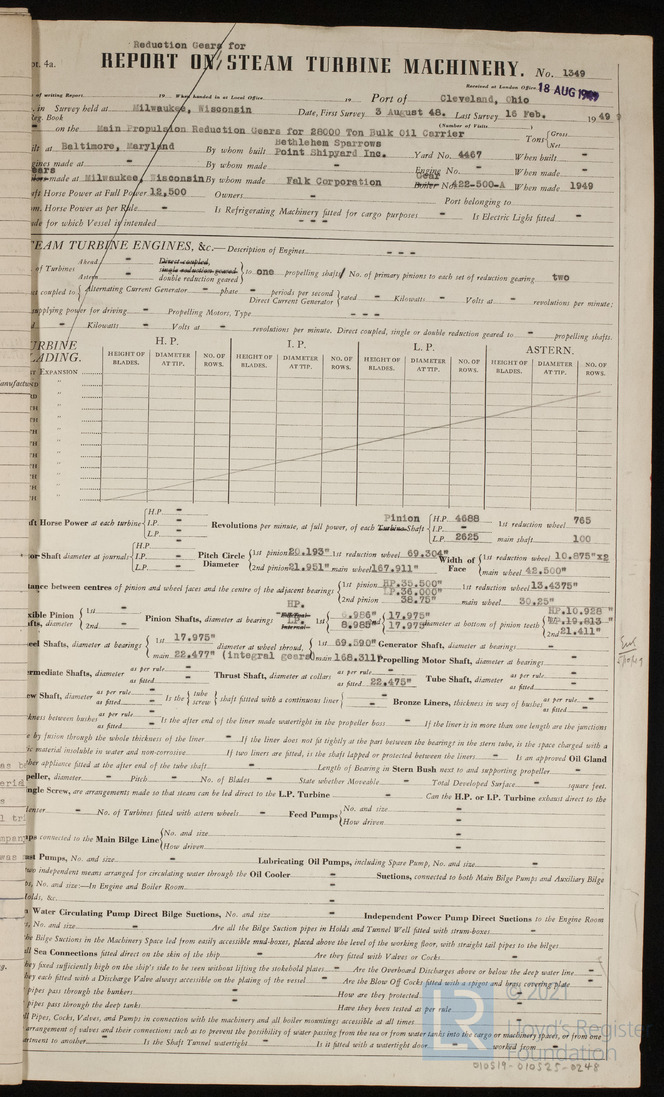 Reduction Gears for
pt. 4a.
REPORT ON STEAM TURBINE MACHINERY. No. 1349
Received at London Office 18 AUG 1949
of writing Report 19 When handed in at Local Office 19 Port of Cleveland, Ohio
in Survey held at Milwaukee, Wisconsin Date, First Survey 3 August 48. Last Survey 16 Feb. 1949
Reg. Book (Number of Visits
on the Main Propulsion Reduction Gears for 28000 Ton Bulk Oil Carrier Tons { Gross Net
ilt at Baltimore, Maryland By whom built Bethlehem Sparrows Point Shipyard Inc. Yard No. 4467 When built -
gines made at - By whom made - Engine No. - When made -
ears made at Milwaukee, Wisconsin By whom made Falk Corporation Gear Boiler No. 422-500-A When made 1949
aft Horse Power at Full Power 12,500 Owners - Port belonging to
m. Horse Power as per Rule - Is Refrigerating Machinery fitted for cargo purposes - Is Electric Light fitted -
ade for which Vessel is intended - - -
TEAM TURBINE ENGINES, &c.—Description of Engines - - -
of Turbines Ahead - Astern - Direct coupled, single reduction geared double reduction geared } to one propelling shafts No. of primary pinions to each set of reduction gearing two
ct coupled to { Alternating Current Generator - phase - periods per second Direct Current Generator } rated - Kilowatts - Volts at - revolutions per minute;
supplying power for driving - Propelling Motors, Type - - -
d - Kilowatts - Volts at - revolutions per minute. Direct coupled, single or double reduction geared to - propelling shafts.
URBINE ADING. H. P. I. P. L. P. ASTERN.
HEIGHT OF BLADES. DIAMETER AT TIP. NO. OF ROWS. HEIGHT OF BLADES. DIAMETER AT TIP. NO. OF ROWS. HEIGHT OF BLADES. DIAMETER AT TIP. NO. OF ROWS. HEIGHT OF BLADES. DIAMETER AT TIP. NO. OF ROWS.
EXPANSION
aft Horse Power at each turbine { H.P. - I.P. - L.P. - Revolutions per minute, at full power, of each Pinion Turbine Shaft { H.P. 4688 I.P. - L.P. 2625 1st reduction wheel 765 main shaft 100
or Shaft diameter at journals { H.P. - I.P. - L.P. - Pitch Circle Diameter { 1st pinion 20.193" 1st reduction wheel 69.304" 2nd pinion 21.951" main wheel 167.911" Width of Face { 1st reduction wheel 10.875"x2 main wheel 42.500"
tance between centres of pinion and wheel faces and the centre of the adjacent bearings { 1st pinion HP.35.500" LP.36.000" 2nd pinion 38.75" 1st reduction wheel 13.4375" main wheel 30.25"
xible Pinion fts, diameter { 1st - 2nd - Pinion Shafts, diameter at bearings HP. LP. 1st 6.986" 8.985" 2nd 17.975" 17.975" diameter at bottom of pinion teeth { HP.10.928" 19.813" 2nd 21.411"
eel Shafts, diameter at bearings { 1st 17.975" main 22.477" (integral gears) diameter at wheel shroud, { 1st 69.590" main 168.311" Generator Shaft, diameter at bearings - Propelling Motor Shaft, diameter at bearings -
ermediate Shafts, diameter as per rule - as fitted - Thrust Shaft, diameter at collars as per rule - as fitted 22.475" Tube Shaft, diameter as per rule - as fitted -
ew Shaft, diameter as per rule - as fitted - Is the { tube screw } shaft fitted with a continuous liner { - Bronze Liners, thickness in way of bushes as per rule - as fitted -
kness between bushes as per rule - as fitted - Is the after end of the liner made watertight in the propeller boss - If the liner is in more than one length are the junctions
e by fusion through the whole thickness of the liner - If the liner does not fit tightly at the part between the bearings in the stern tube, is the space charged with a
ic material insoluble in water and non-corrosive - If two liners are fitted, is the shaft lapped or protected between the liners - Is an approved Oil Gland
her appliance fitted at the after end of the tube shaft - Length of Bearing in Stern Bush next to and supporting propeller -
peller, diameter - Pitch - No. of Blades - State whether Moveable - Total Developed Surface - square feet.
ngle Screw, are arrangements made so that steam can be led direct to the L.P. Turbine - Can the H.P. or I.P. Turbine exhaust direct to the
denser - No. of Turbines fitted with astern wheels - Feed Pumps { No. and size - How driven -
ps connected to the Main Bilge Line { No. and size - How driven -
ast Pumps, No. and size - Lubricating Oil Pumps, including Spare Pump, No. and size -
two independent means arranged for circulating water through the Oil Cooler - Suctions, connected to both Main Bilge Pumps and Auxiliary Bilge
ps, No. and size:—In Engine and Boiler Room -
olds, &c. -
n Water Circulating Pump Direct Bilge Suctions, No. and size - Independent Power Pump Direct Suctions to the Engine Room
s, No. and size - Are all the Bilge Suction pipes in Holds and Tunnel Well fitted with strum-boxes -
the Bilge Suctions in the Machinery Space led from easily accessible mud-boxes, placed above the level of the working floor, with straight tail pipes to the bilges -
ll Sea Connections fitted direct on the skin of the ship - Are they fitted with Valves or Cocks -
hey fixed sufficiently high on the ship's side to be seen without lifting the stokehold plates - Are the Overboard Discharges above or below the deep water line -
hey each fitted with a Discharge Valve always accessible on the plating of the vessel - Are the Blow Off Cocks fitted with a spigot and brass covering plate -
pipes pass through the bunkers - How are they protected -
pipes pass through the deep tanks - Have they been tested as per rule -
ll Pipes, Cocks, Valves, and Pumps in connection with the machinery and all boiler mountings accessible at all times -
arrangement of valves and their connections such as to prevent the possibility of water passing from the sea or from water tanks into the cargo or machinery spaces, or from one
artment to another - Is the Shaft Tunnel watertight - Is it fitted with a watertight door - worked from -
LR © 2021 Lloyd's Register Foundation
010519-010525-0248